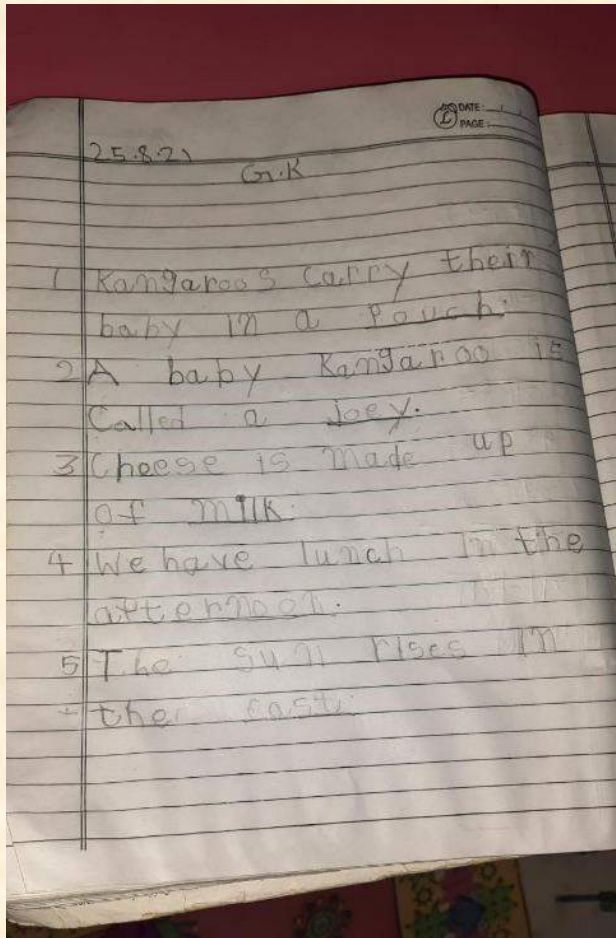 DATE:
PAGE:
25.8.21
G.K
1 Kangaroos Carry their
baby in a Pouch.
2 A baby Kangaroo is
Called a joey.
3 Cheese is made up
of milk.
4 We have lunch in the
afternoon.
5 The sun rises in
the east.